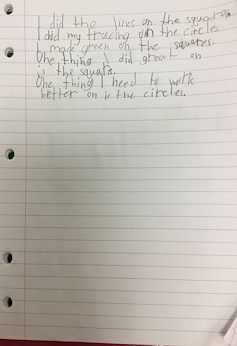 I did the lines on the squares.
I did my tracing on the circle.
I made green on the squares.
One thing I did great on
is the square.
One thing I need to work
better on is the circles.